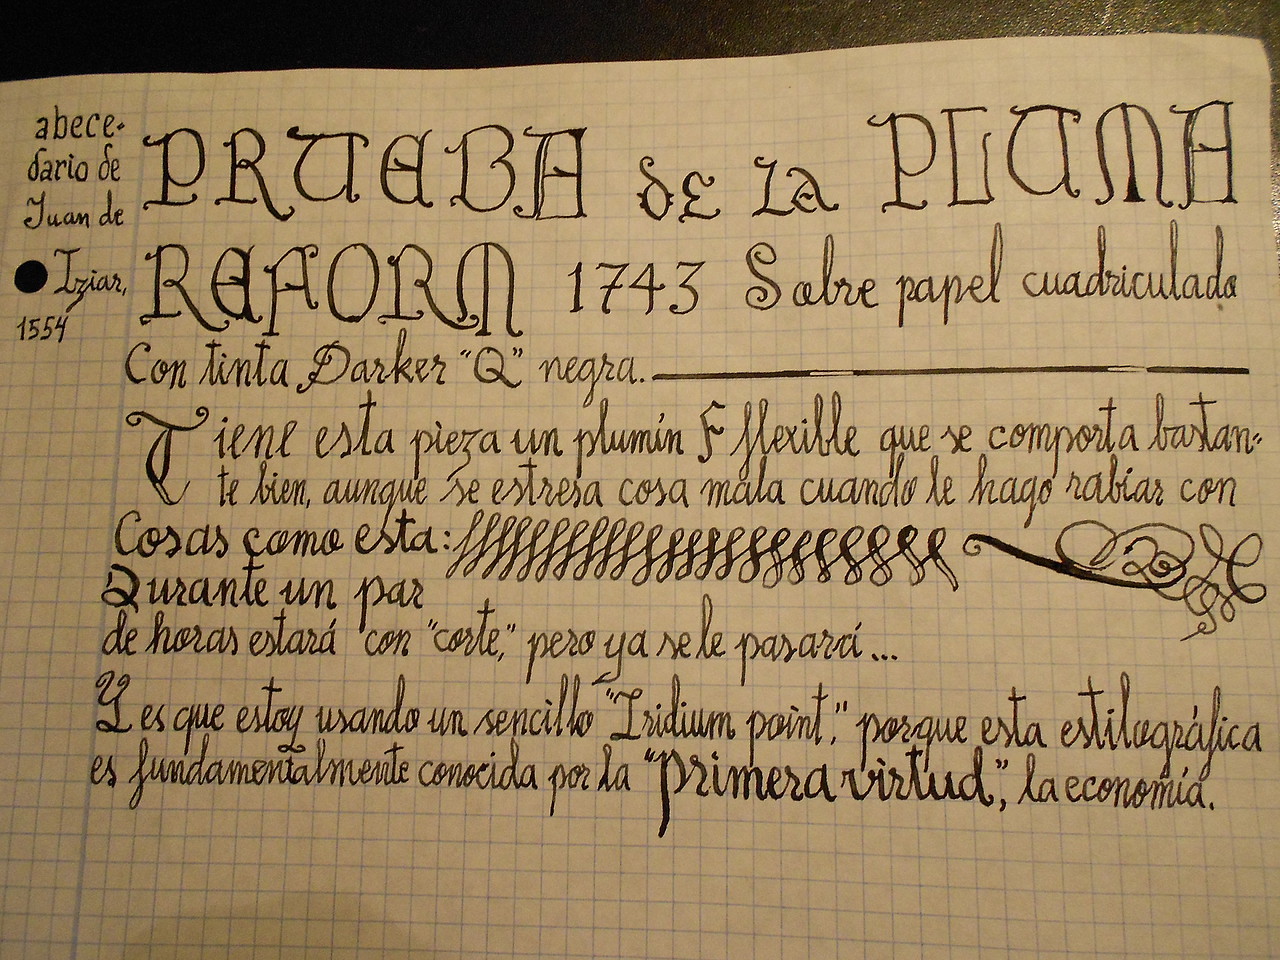 abece-
dario de
Juan de
Iziar,
1554
PRUEBA de la PLUMA
REFORM 1743 Sobre papel cuadriculado
Con tinta Parker "Q" negra.
Tiene esta pieza un plumín F flexible que se comporta bastan=
te bien, aunque se estresa cosa mala cuando le hago rabiar con
Cosas como esta:
Durante un par
de horas estará con "corte," pero ya se le pasará...
Y es que estoy usando un sencillo "Iridium point," porque esta estilográfica
es fundamentalmente conocida por la "primera virtud", la economía.